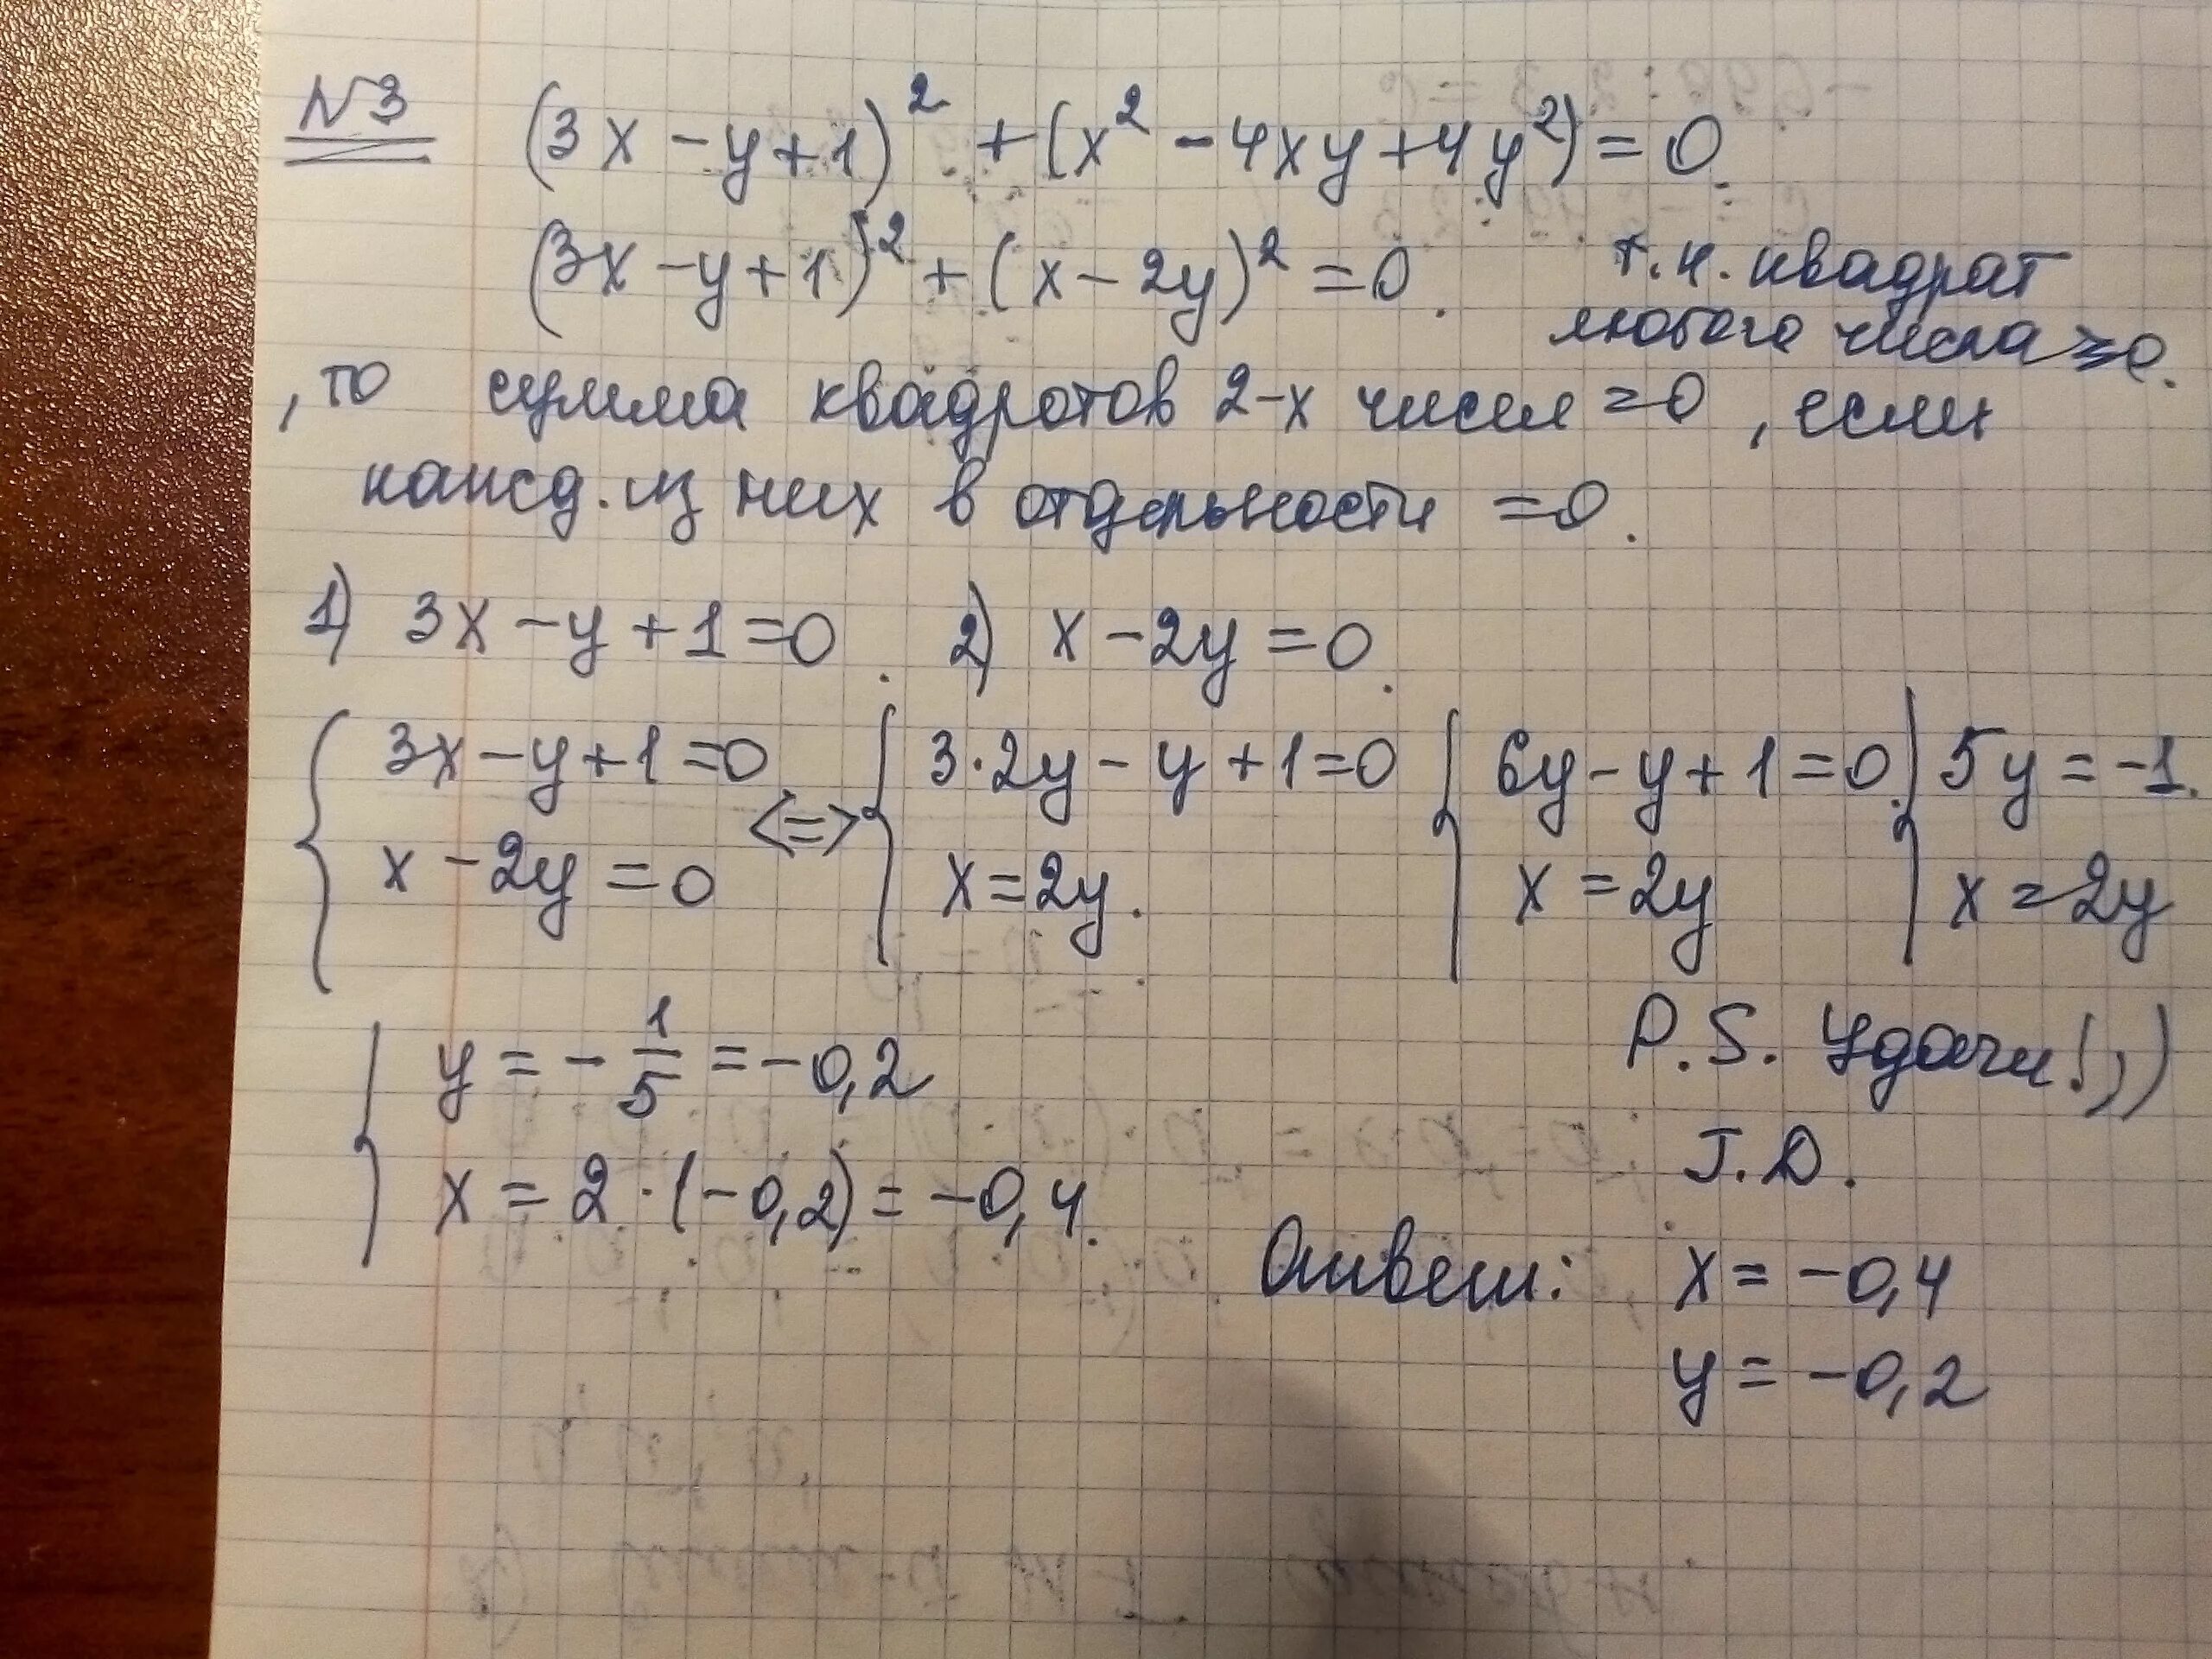 N3 (3x - y + 1)² + (x² - 4xy + 4y²) = 0.
(3x - y + 1)² + (x - 2y)² = 0. т.к. квадрат
любого числа ≥ 0.
, то сумма квадротов 2-х чисел = 0, если
кажд. из них в отдельности = 0.
1) 3x - y + 1 = 0. 2) x - 2y = 0.
{ 3x - y + 1 = 0 <=> { 3·2y - y + 1 = 0 { 6y - y + 1 = 0. { 5y = -1.
x - 2y = 0 x = 2y. x = 2y x = 2y
{ y = - 1/5 = -0,2
x = 2·(-0,2) = -0,4.
P.S. Удачи! ;))
J.D.
Ответ: x = -0,4
y = -0,2